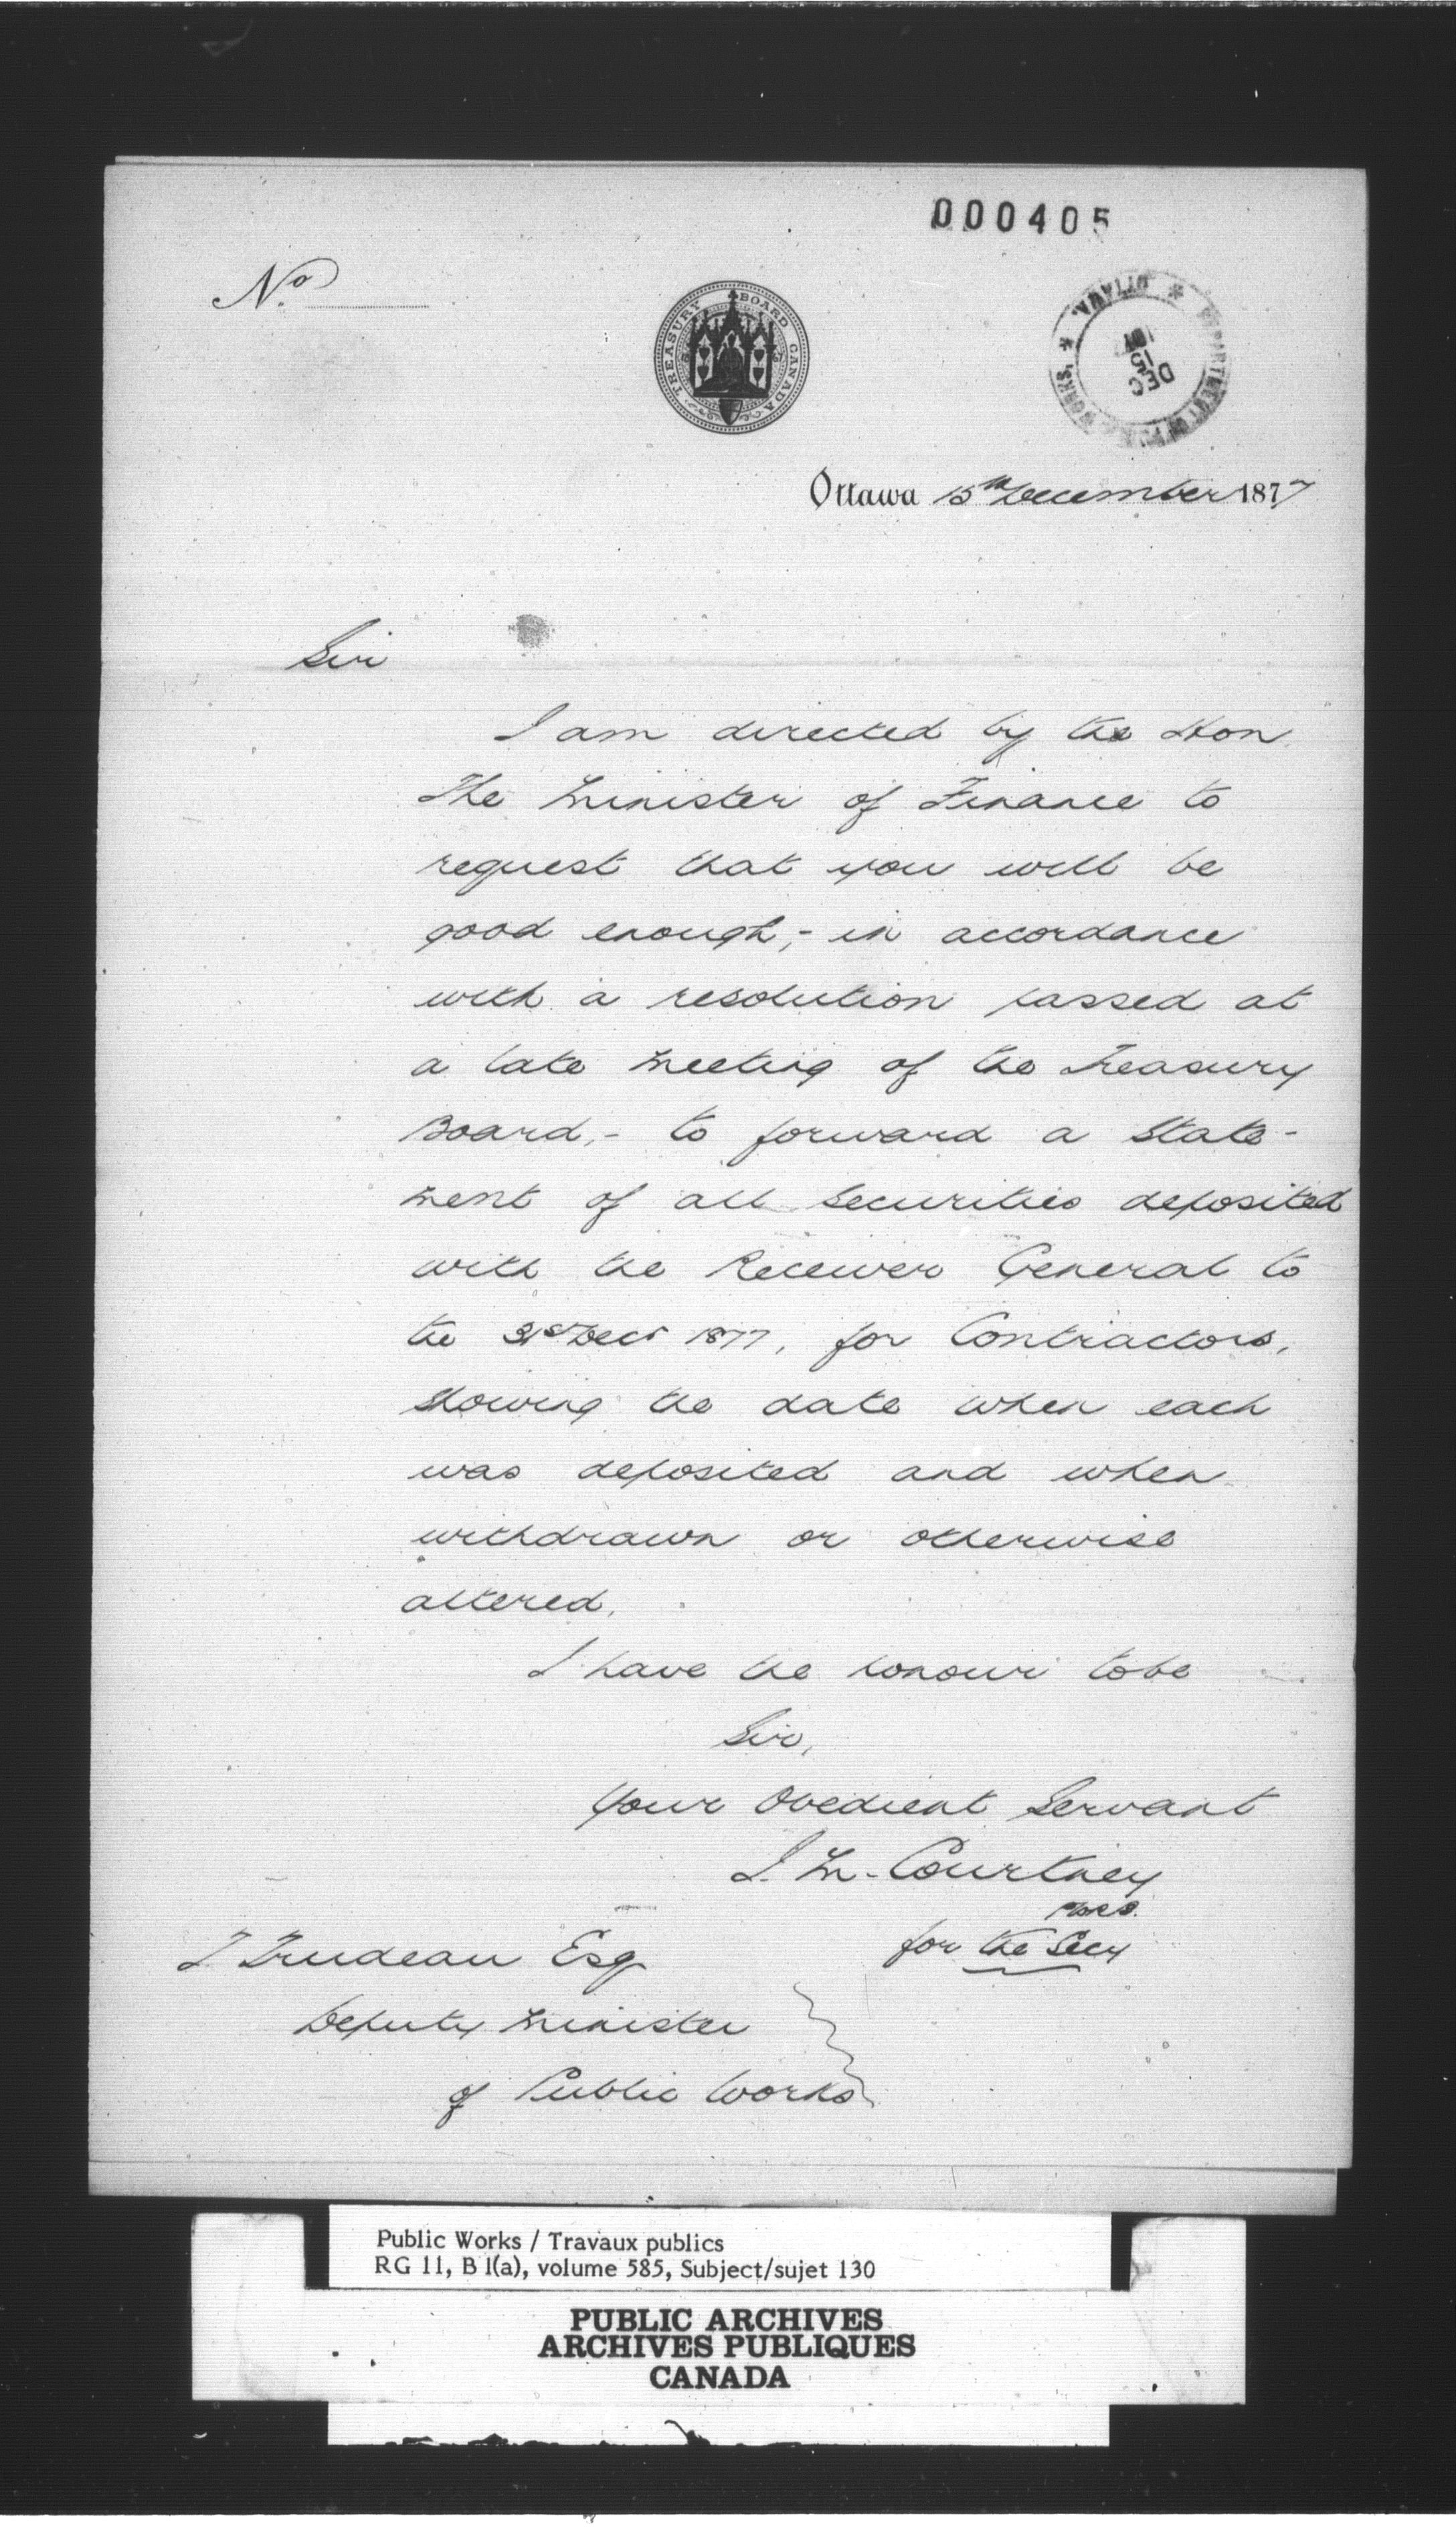 000405
No.
TREASURY BOARD CANADA
* OTTAWA. * DEPARTMENT OF PUBLIC WORKS.
DEC
15
Ottawa 15th December 1877
Sir
I am directed by the Hon.
The Minister of Finance to
request that you will be
good enough,- in accordance
with a resolution passed at
a late meeting of the Treasury
Board,- to forward a State-
ment of all Securities deposited
with the Receiver General to
the 31st Decr 1877, for Contractors,
showing the date when each
was deposited and when
withdrawn or otherwise
altered.
I have the honour to be
Sir,
Your Obedient Servant
J. M. Courtney
for the Secy
T Trudeau Esq
Deputy Minister
of Public Works
Public Works / Travaux publics
RG 11, B 1(a), volume 585, Subject/sujet 130
PUBLIC ARCHIVES
ARCHIVES PUBLIQUES
CANADA